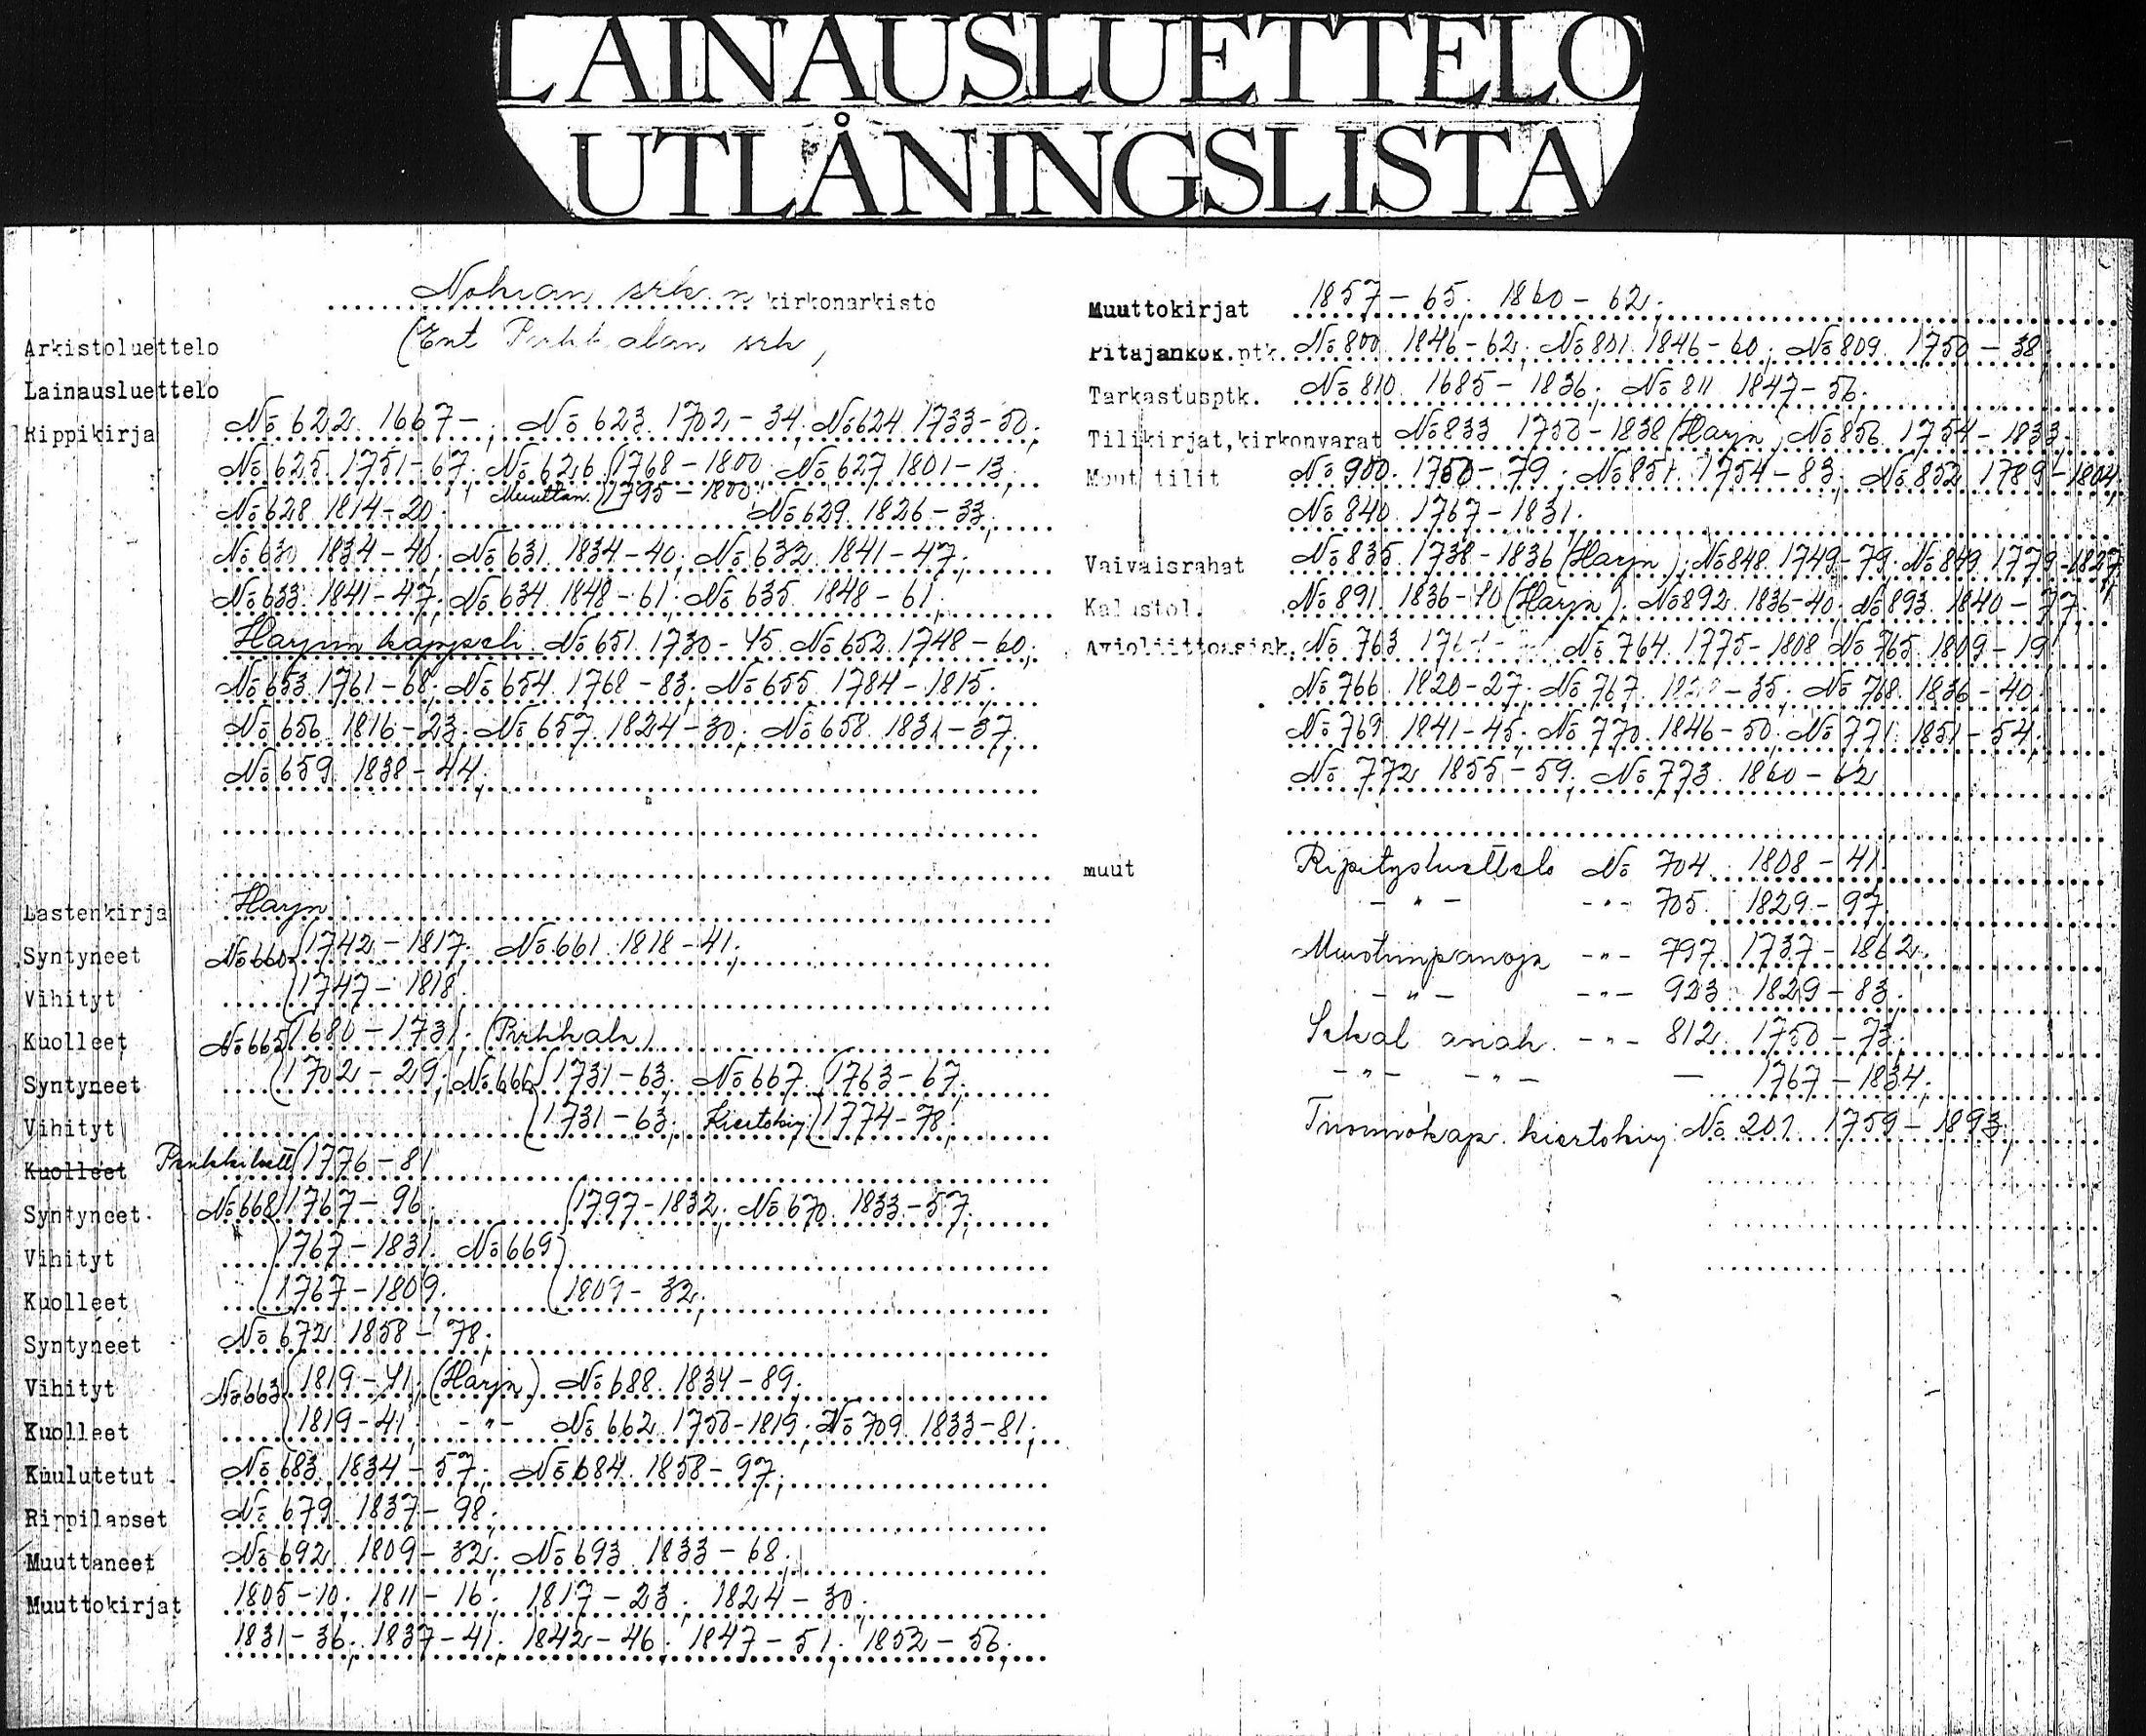 LAINAUSLUETTELO
UTLÅNINGSLISTA
Nokian srk:n kirkonarkisto
(Ent Pirkkalan srk)
Arkistoluettelo
Lainausluettelo
Rippikirja No 622 1667-; No 623 1702-34; No 624 1733-50;
No 625 1751-67; No 626 (1768-1800; No 627 1801-13;
Muuttan. 1795-1800;
No 628 1814-20; No 629 1826-33;
No 630 1834-40; No 631 1834-40; No 632 1841-47;
No 633 1841-47; No 634 1848-61; No 635 1848-61;
Harjun kappeli No 651 1730-45 No 652 1748-60;
No 653 1761-68; No 654 1768-83; No 655 1784-1815;
No 656 1816-23; No 657 1824-30; No 658 1831-37;
No 659 1838-44;
Lastenkirja Harju
Syntyneet No 660 (1742-1817; No 661 1818-41;
Vihityt (1747-1818;
Kuolleet No 665 (1680-1731; (Pirkkala)
Syntyneet (1702-29; No 666 (1731-63; No 667 (1763-67;
Vihityt (1731-63; Kiertokirj. (1774-78;
Kuolleet (1776-81
Syntyneet No 668 (1767-96; (1797-1832; No 670 1833-57;
Vihityt (1767-1831; No 669
Kuolleet (1767-1809; (1809-32;
Syntyneet No 672 1858-78;
Vihityt No 663 (1819-41; (Harju) No 688 1834-89;
Kuolleet (1819-41; -"- No 662 1750-1819; No 709 1833-81;
Kuulutetut No 683 1834-57; No 684 1858-97;
Rippilapset No 679 1837-98;
Muuttaneet No 692 1809-32; No 693 1833-68;
Muuttokirjat 1805-10; 1811-16; 1817-23; 1824-30;
1831-36; 1837-41; 1842-46; 1847-51; 1852-56;
Muuttokirjat 1857-65; 1860-62;
Pitäjänkok.ptk. No 800 1846-62; No 801 1846-60; No 809 1750-38;
Tarkastusptk. No 810 1685-1836; No 811 1847-56;
Tilikirjat, kirkonvarat No 833 1750-1838 (Harju); No 856 1754-1833;
Muut tilit No 900 1750-79; No 851 1754-83; No 852 1789-1804;
No 840 1767-1831;
Vaivaisrahat No 835 1738-1836 (Harju); No 848 1749-79; No 849 1779-1827;
Kalustol. No 891 1836-40 (Harju); No 892 1836-40; No 893 1840-77;
Avioliittoasiak. No 763 No 764 1775-1808 No 765 1809-19;
No 766 1820-27; No 767 -35; No 768 1836-40;
No 769 1841-45; No 770 1846-50; No 771 1851-54;
No 772 1855-59; No 773 1860-62
muut Ripitysluettelo No 704 1808-41
-"- -"- 705 1829-97
Muistiinpanoja -"- 797 1737-1862;
-"- -"- 923 1829-83;
Sekal asiak. -"- 812 1750-73;
-"- -"- - 1767-1834;
Tuomiokap. kiertokirj. No 201 1759-1893;